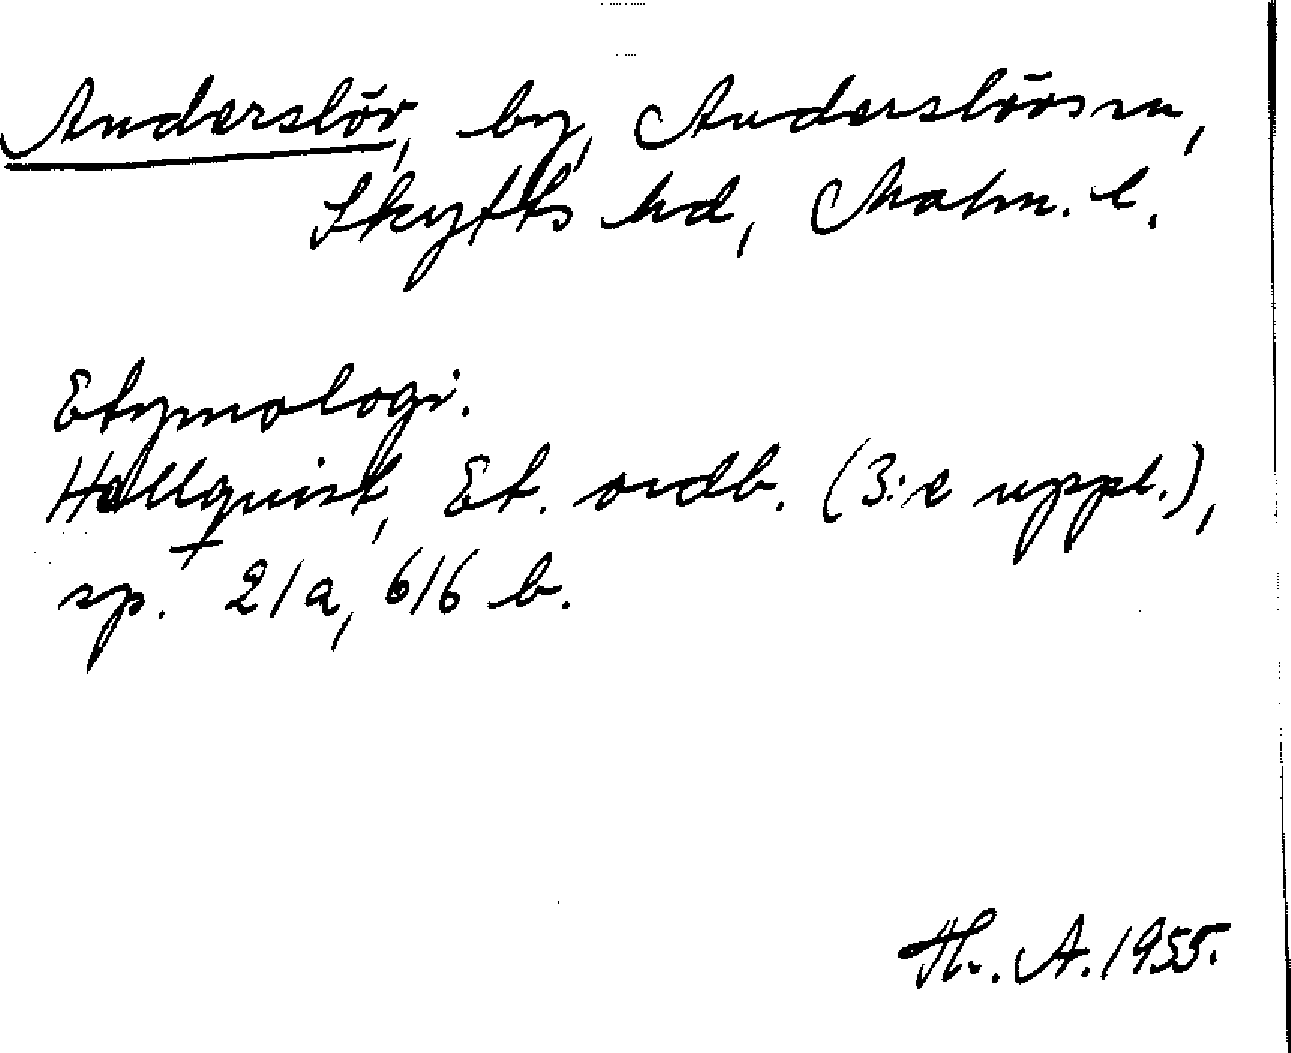 Anderslöv, by, Anderslövs sn,
Skytts hd, Malm. l.
Etymologi.
Hellquist, Et. ordb. (3:e uppl.),
sp. 21 a, 616 b.
Th. A. 1955.